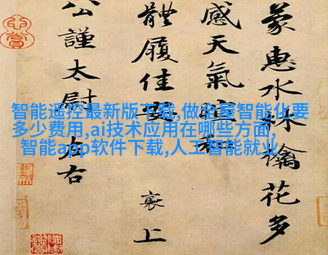 智能遥控最新版下载,做全屋智能化要
多少费用,ai技术应用在哪些方面,
智能app软件下载,人工智能就业
蒙惠水林檎花多
感天氣
體履佳
襄上
公謹太尉左右